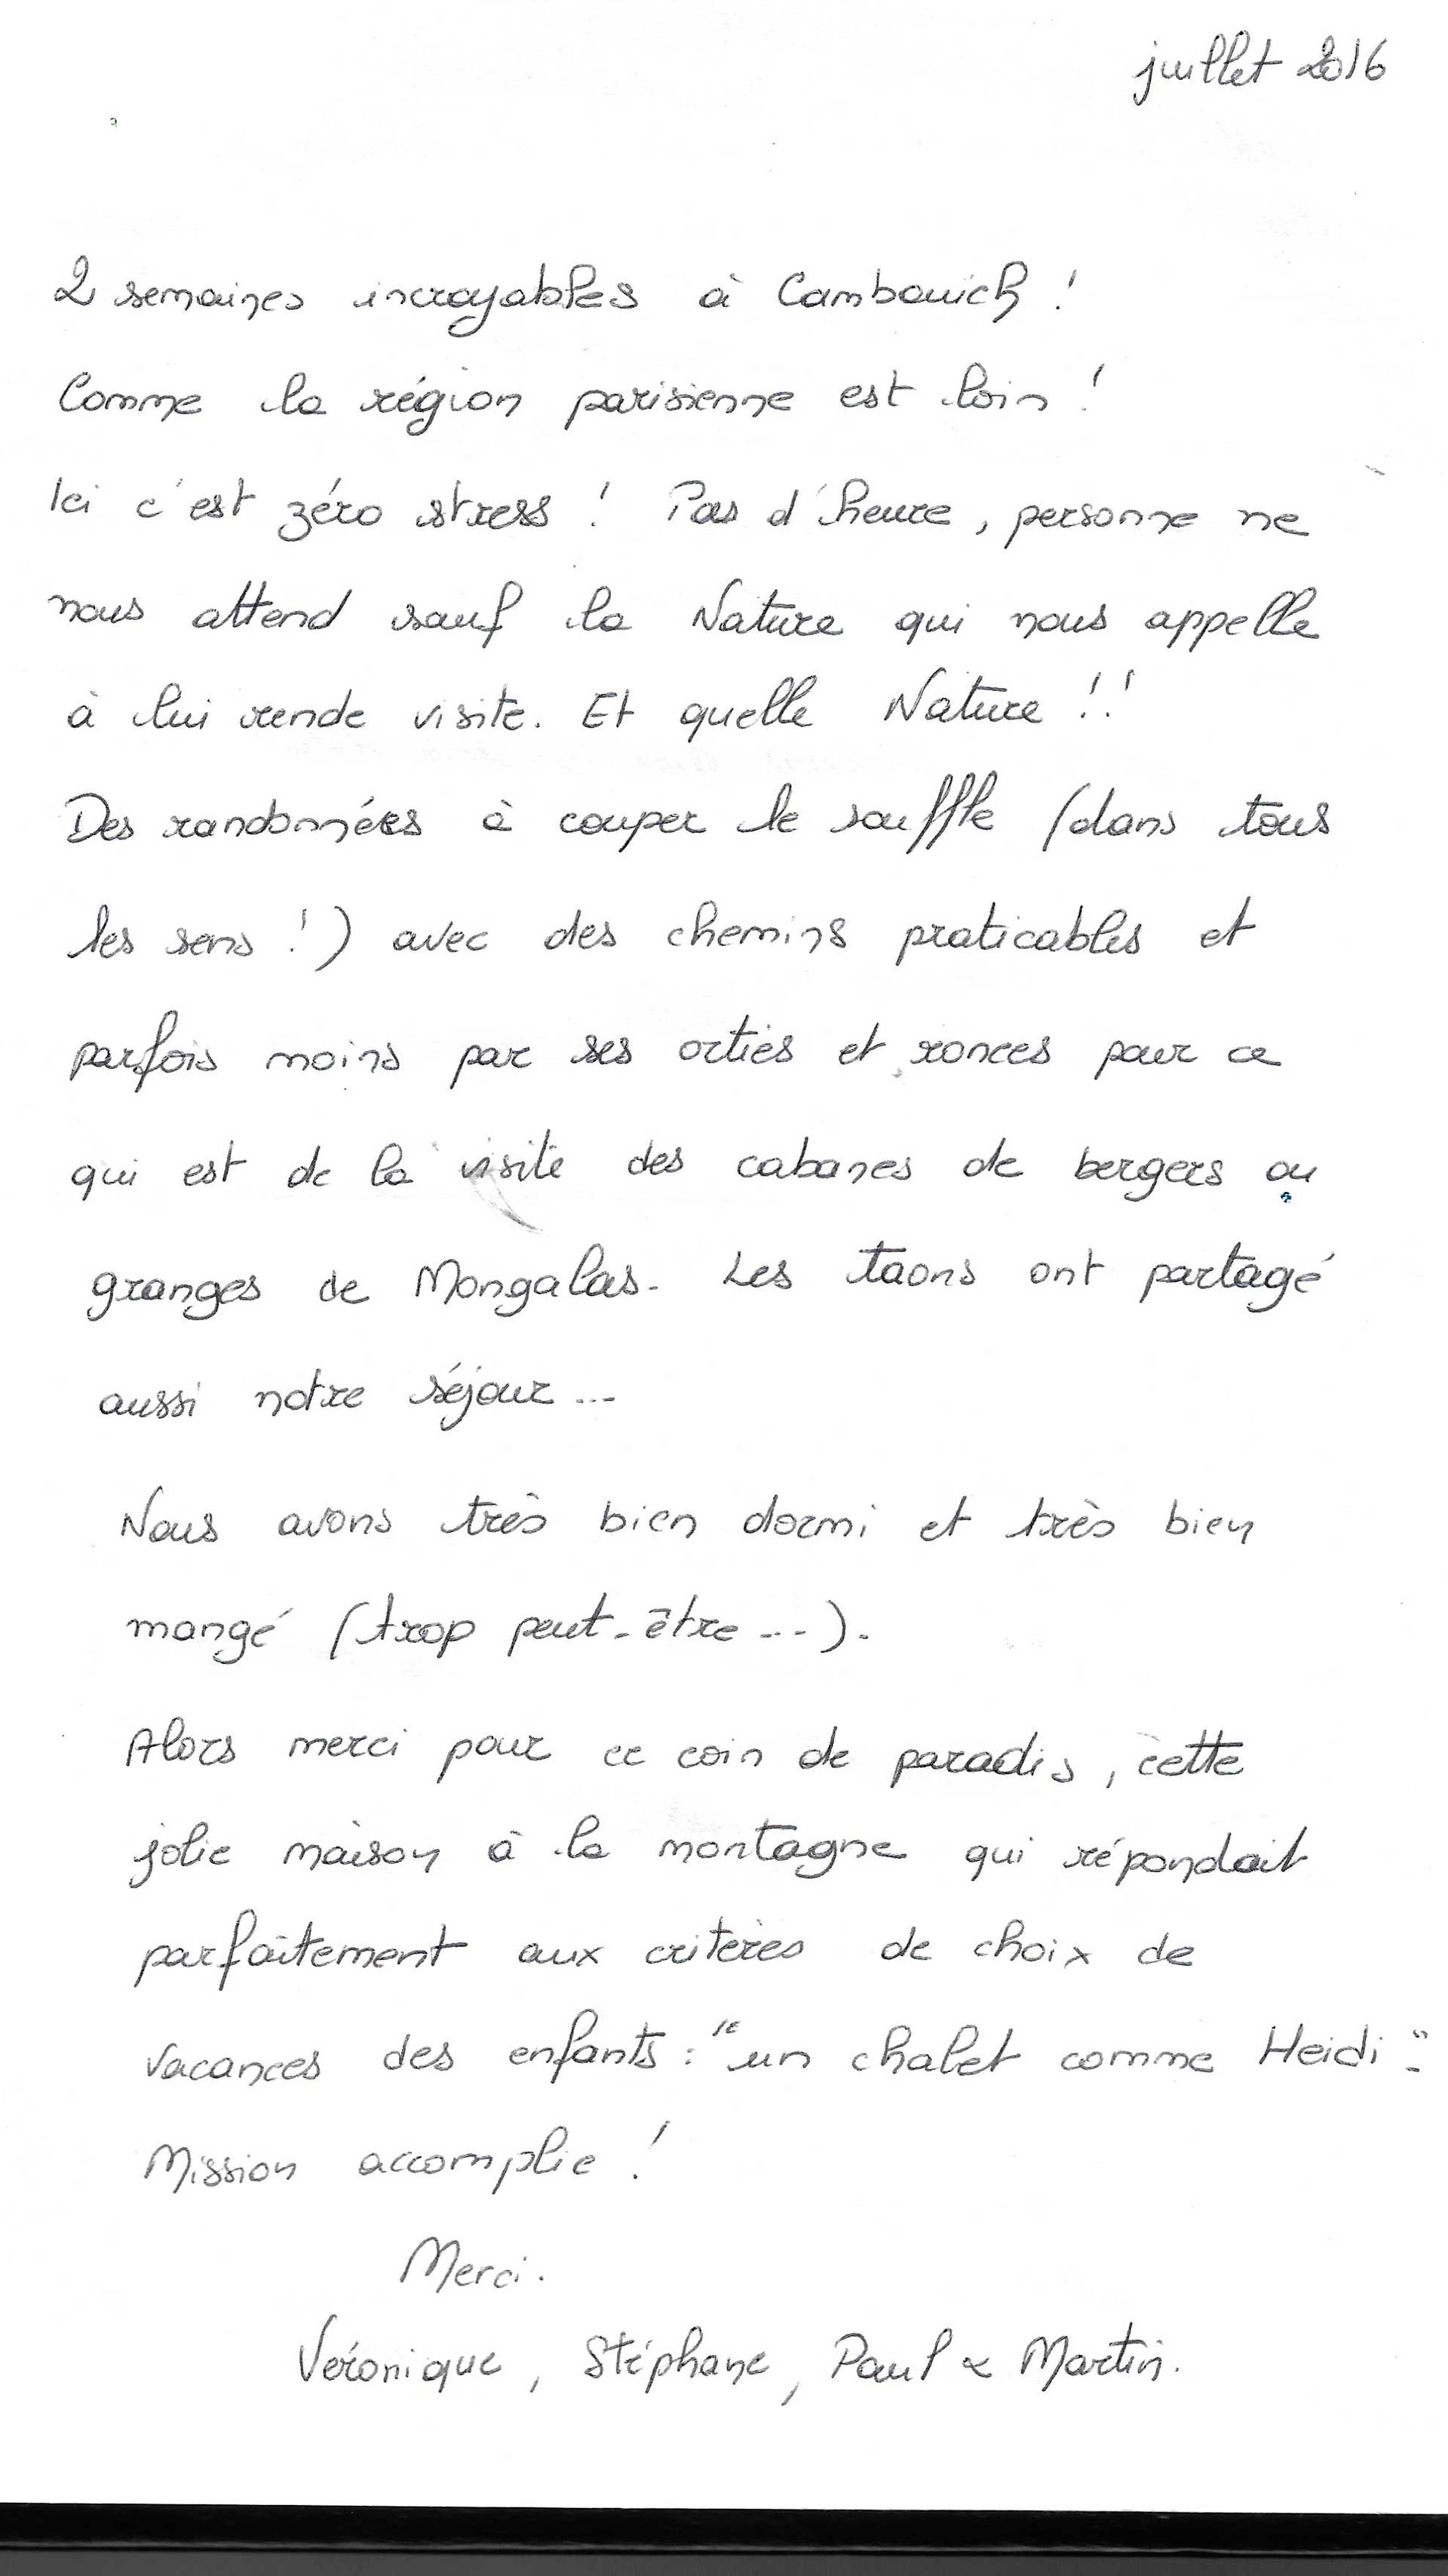 juillet 2016
2 semaines incroyables à Cambouich !
Comme la région parisienne est loin !
Ici c'est zéro stress ! Pas d'heure, personne ne
nous attend sauf la Nature qui nous appelle
à lui rende visite. Et quelle Nature !!
Des randonnées à couper le souffle (dans tous
les sens !) avec des chemins praticables et
parfois moins par ses orties et ronces pour ce
qui est de la visite des cabanes de bergers ou
granges de Mongalas. Les taons ont partagé
aussi notre séjour ...
Nous avons très bien dormi et très bien
mangé (trop peut-être ...).
Alors merci pour ce coin de paradis, cette
jolie maison à la montagne qui répondait
parfaitement aux critères de choix de
vacances des enfants : "un chalet comme Heidi".
Mission accomplie !
Merci.
Véronique, Stéphane, Paul & Martin.